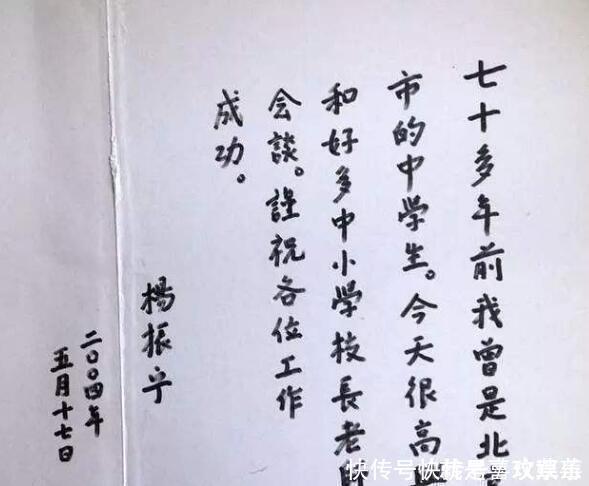 七十多年前我曾是北
市的中學生。今天很高
和好多中小學校長老
会談。謹祝各位工作
成功。
楊振宁
二〇〇四年
五月十七日
快传号